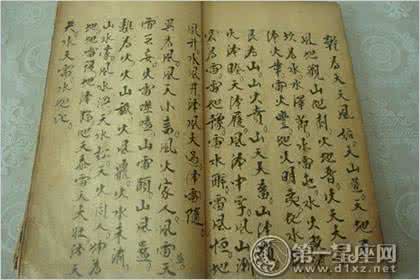 為天天風姤。天山遯天地
風地觀山地剝火地晉火天大
坎為水水澤節水雷屯水火
澤火革雷火豐地火明夷地水
艮為山山火賁山天大畜山澤
火澤睽天澤履風澤中孚風山漸
震為雷雷地豫雷水解雷風恒地
風升水風井澤風大過澤雷隨
巽為風風天小畜。風火家人。風雷
雷无妄火雷噬嗑山雷頤山風蠱。
離為火火山旅火風鼎火水未濟
山水蒙風水渙天水訟天火同人。坤為
地地雷復地澤臨地天泰雷天大壯澤天
夬水天需水地比。
第一星座网
www.d1xz.net